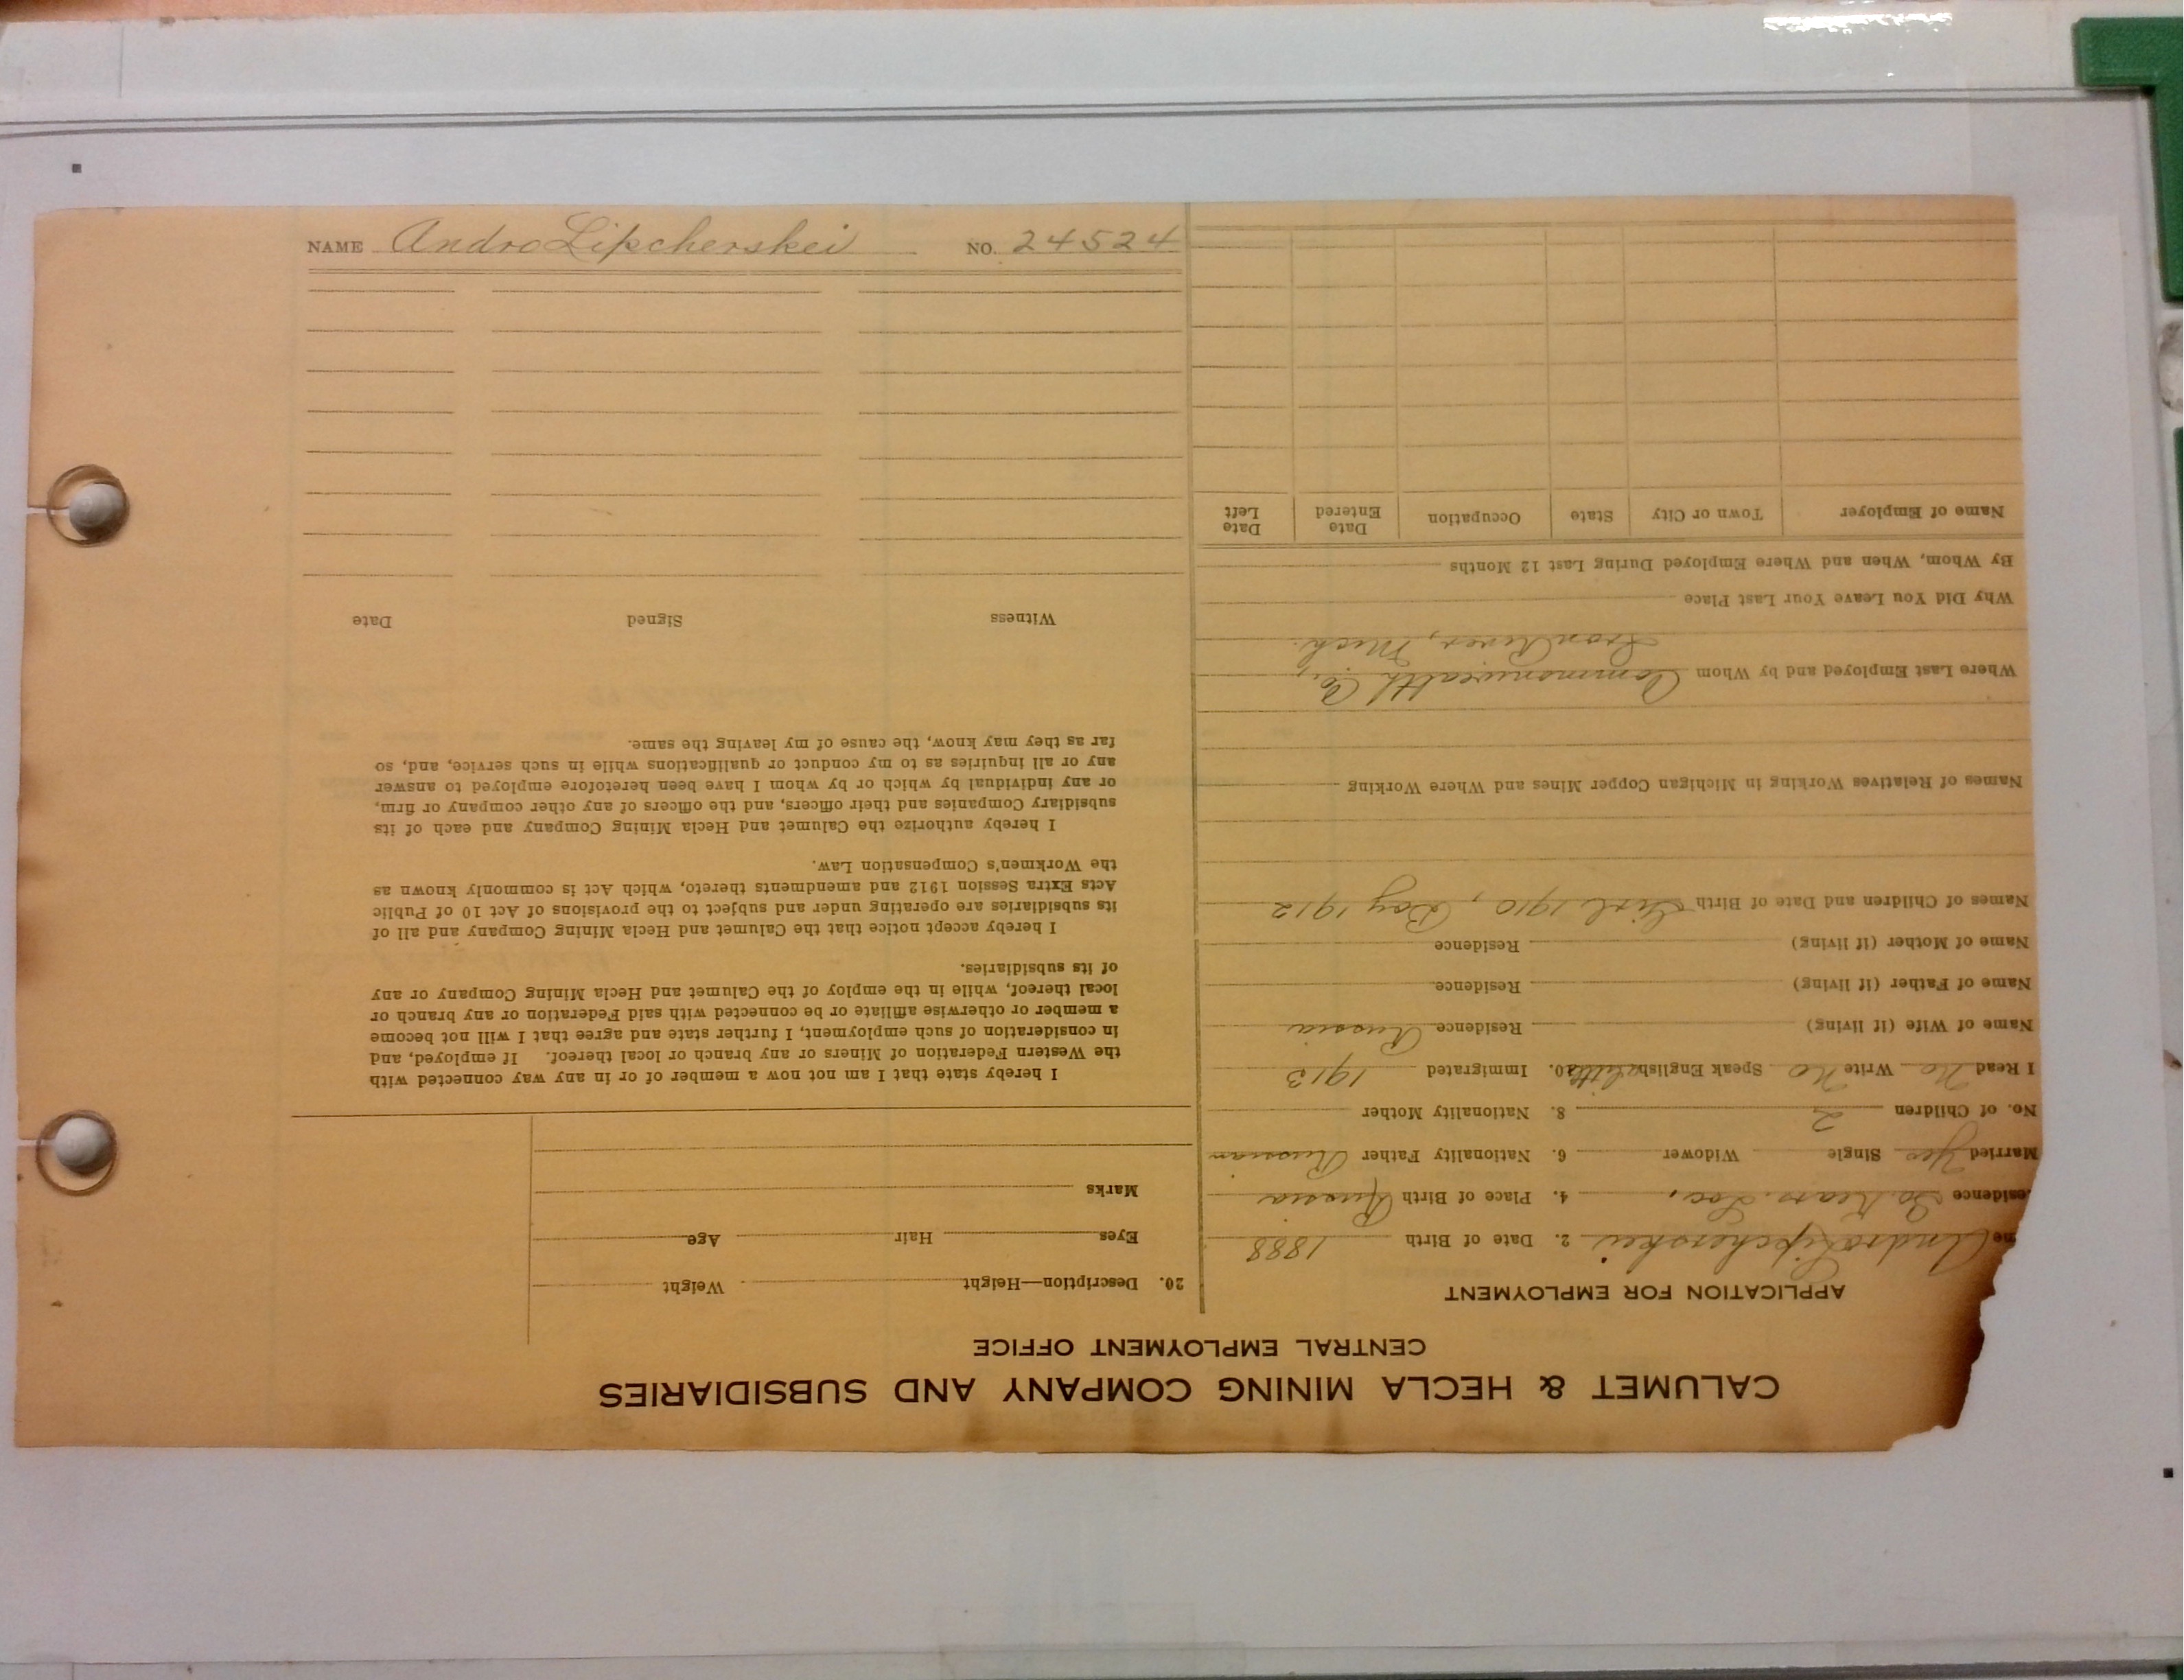 CALUMET & HECLA MINING COMPANY AND SUBSIDIARIES
CENTRAL EMPLOYMENT OFFICE
APPLICATION FOR EMPLOYMENT
me Andro Lipcherskei 2. Date of Birth 1888
esidence So. Kears. Loc. 4. Place of Birth Russia
Married Yes Single Widower 6. Nationality Father Russian
No. of Children 2 8. Nationality Mother
I Read No Write No Speak English little 10. Immigrated 1913
Name of Wife (if living) Residence Russia
Name of Father (if living) Residence
Name of Mother (if living) Residence
Names of Children and Date of Birth Girl 1910, Boy 1912
Names of Relatives Working in Michigan Copper Mines and Where Working
Where Last Employed and by Whom Commonwealth Co.,
Iron River, Mich.
Why Did You Leave Your Last Place
By Whom, When and Where Employed During Last 12 Months
Name of Employer Town or City State Occupation Date Entered Date Left
20. Description—Height Weight
Eyes Hair Age
Marks
I hereby state that I am not now a member of or in any way connected with
the Western Federation of Miners or any branch or local thereof. If employed, and
in consideration of such employment, I further state and agree that I will not become
a member or otherwise affiliate or be connected with said Federation or any branch or
local thereof, while in the employ of the Calumet and Hecla Mining Company or any
of its subsidiaries.
I hereby accept notice that the Calumet and Hecla Mining Company and all of
its subsidiaries are operating under and subject to the provisions of Act 10 of Public
Acts Extra Session 1912 and amendments thereto, which Act is commonly known as
the Workmen's Compensation Law.
I hereby authorize the Calumet and Hecla Mining Company and each of its
subsidiary Companies and their officers, and the officers of any other company or firm,
or any individual by which or by whom I have been heretofore employed to answer
any or all inquiries as to my conduct or qualifications while in such service, and, so
far as they may know, the cause of my leaving the same.
Witness Signed Date
NAME Andro Lipcherskei NO. 24524